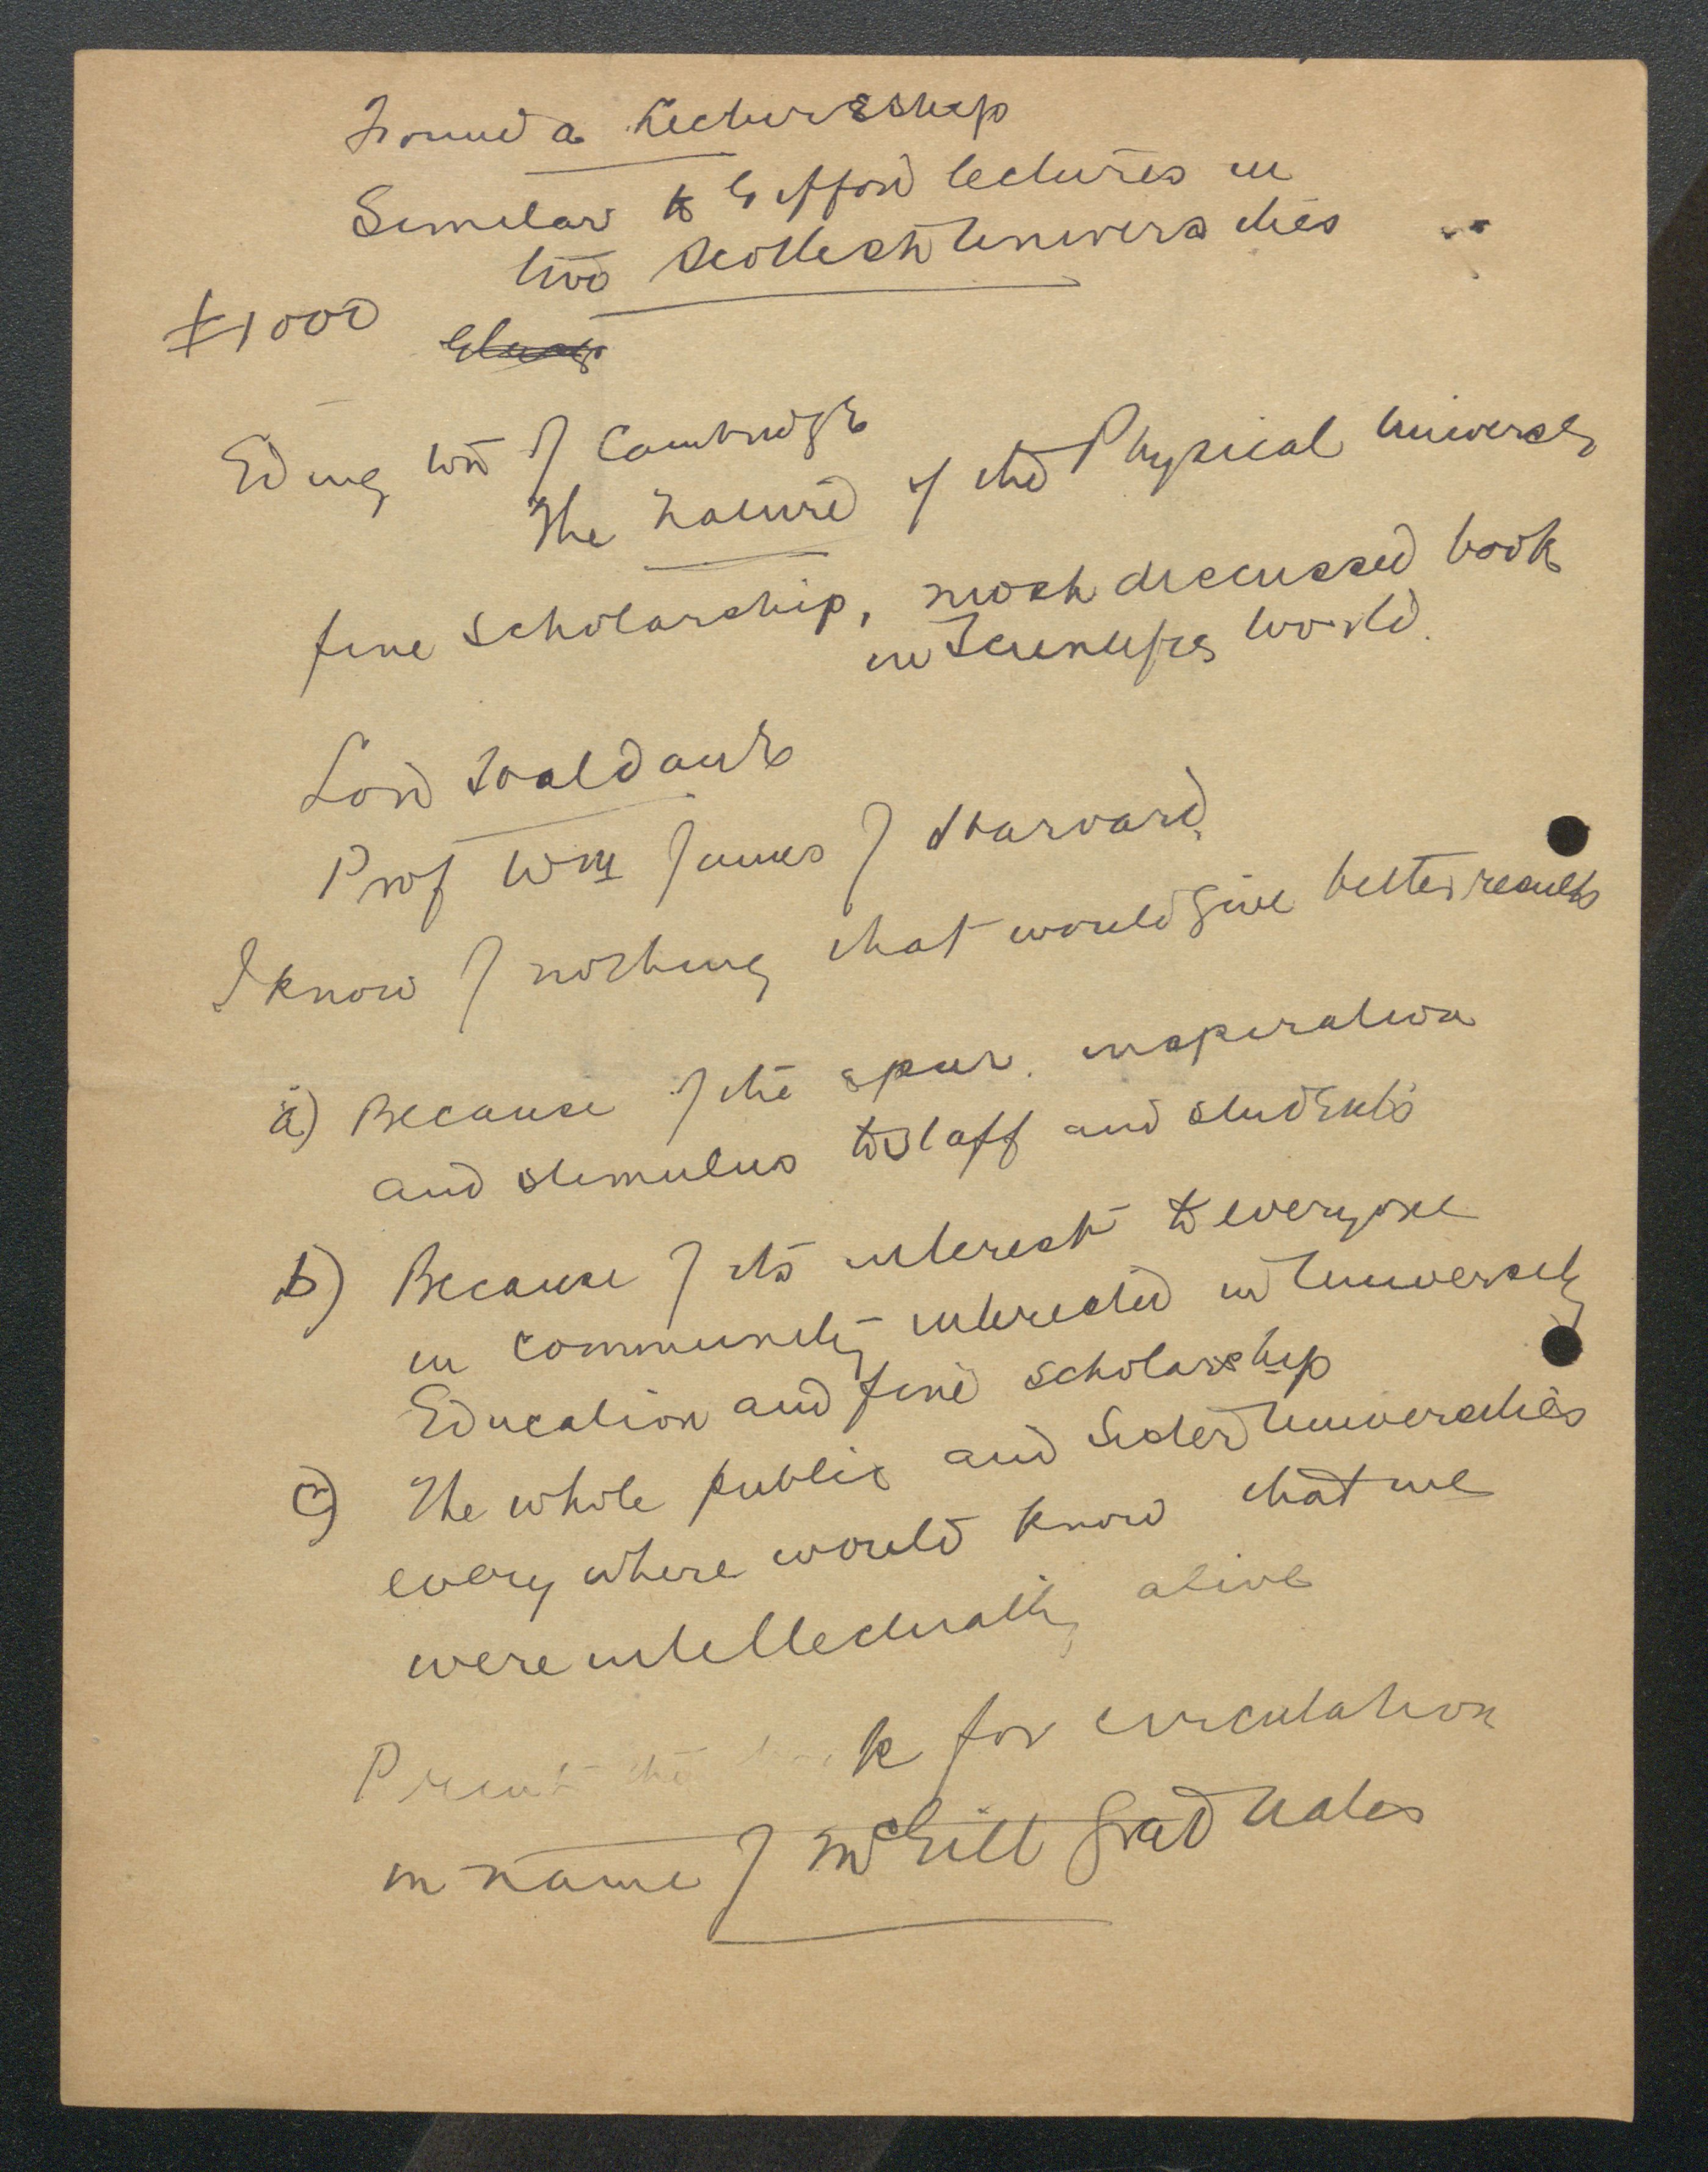 Found a Lectureship
Similar to Gifford lectures in
two Scottish Universities
$1000
Edington of Cambridge
The Nature of the Physical Universe
fine scholarship, most discussed book
in Scientific World.
Lord Haldane
Prof Wm James of Harvard
I know of nothing that would give better results
a) Because of the spur, inspiration
and stimulus to staff and students
b) Because of its interest to everyone
in community interested in University
Education and fine scholarship
c) The whole public and Sister Universities
every where would know that we
were intellectually alive
Print the book for circulation
in name of McGill Graduates